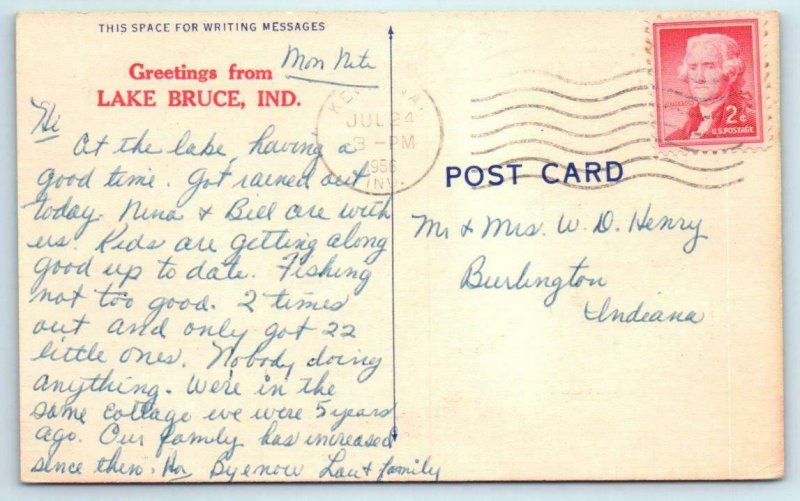 THIS SPACE FOR WRITING MESSAGES
Greetings from
LAKE BRUCE, IND.
Mon Nite
Hi
At the lake, having a
good time. Got rained out
today. Nina & Bill are with
us. Kids are getting along
good up to date. Fishing
not too good. 2 times
out and only got 22
little ones. Nobody doing
anything. We're in the
same cottage we were 5 years
ago. Our family has increased
since then. Ha Byenow & family
JUL 24
3 - PM
1956
POST CARD
2¢
U.S. POSTAGE
Mr & Mrs. W. D. Henry
Burlington
Indiana